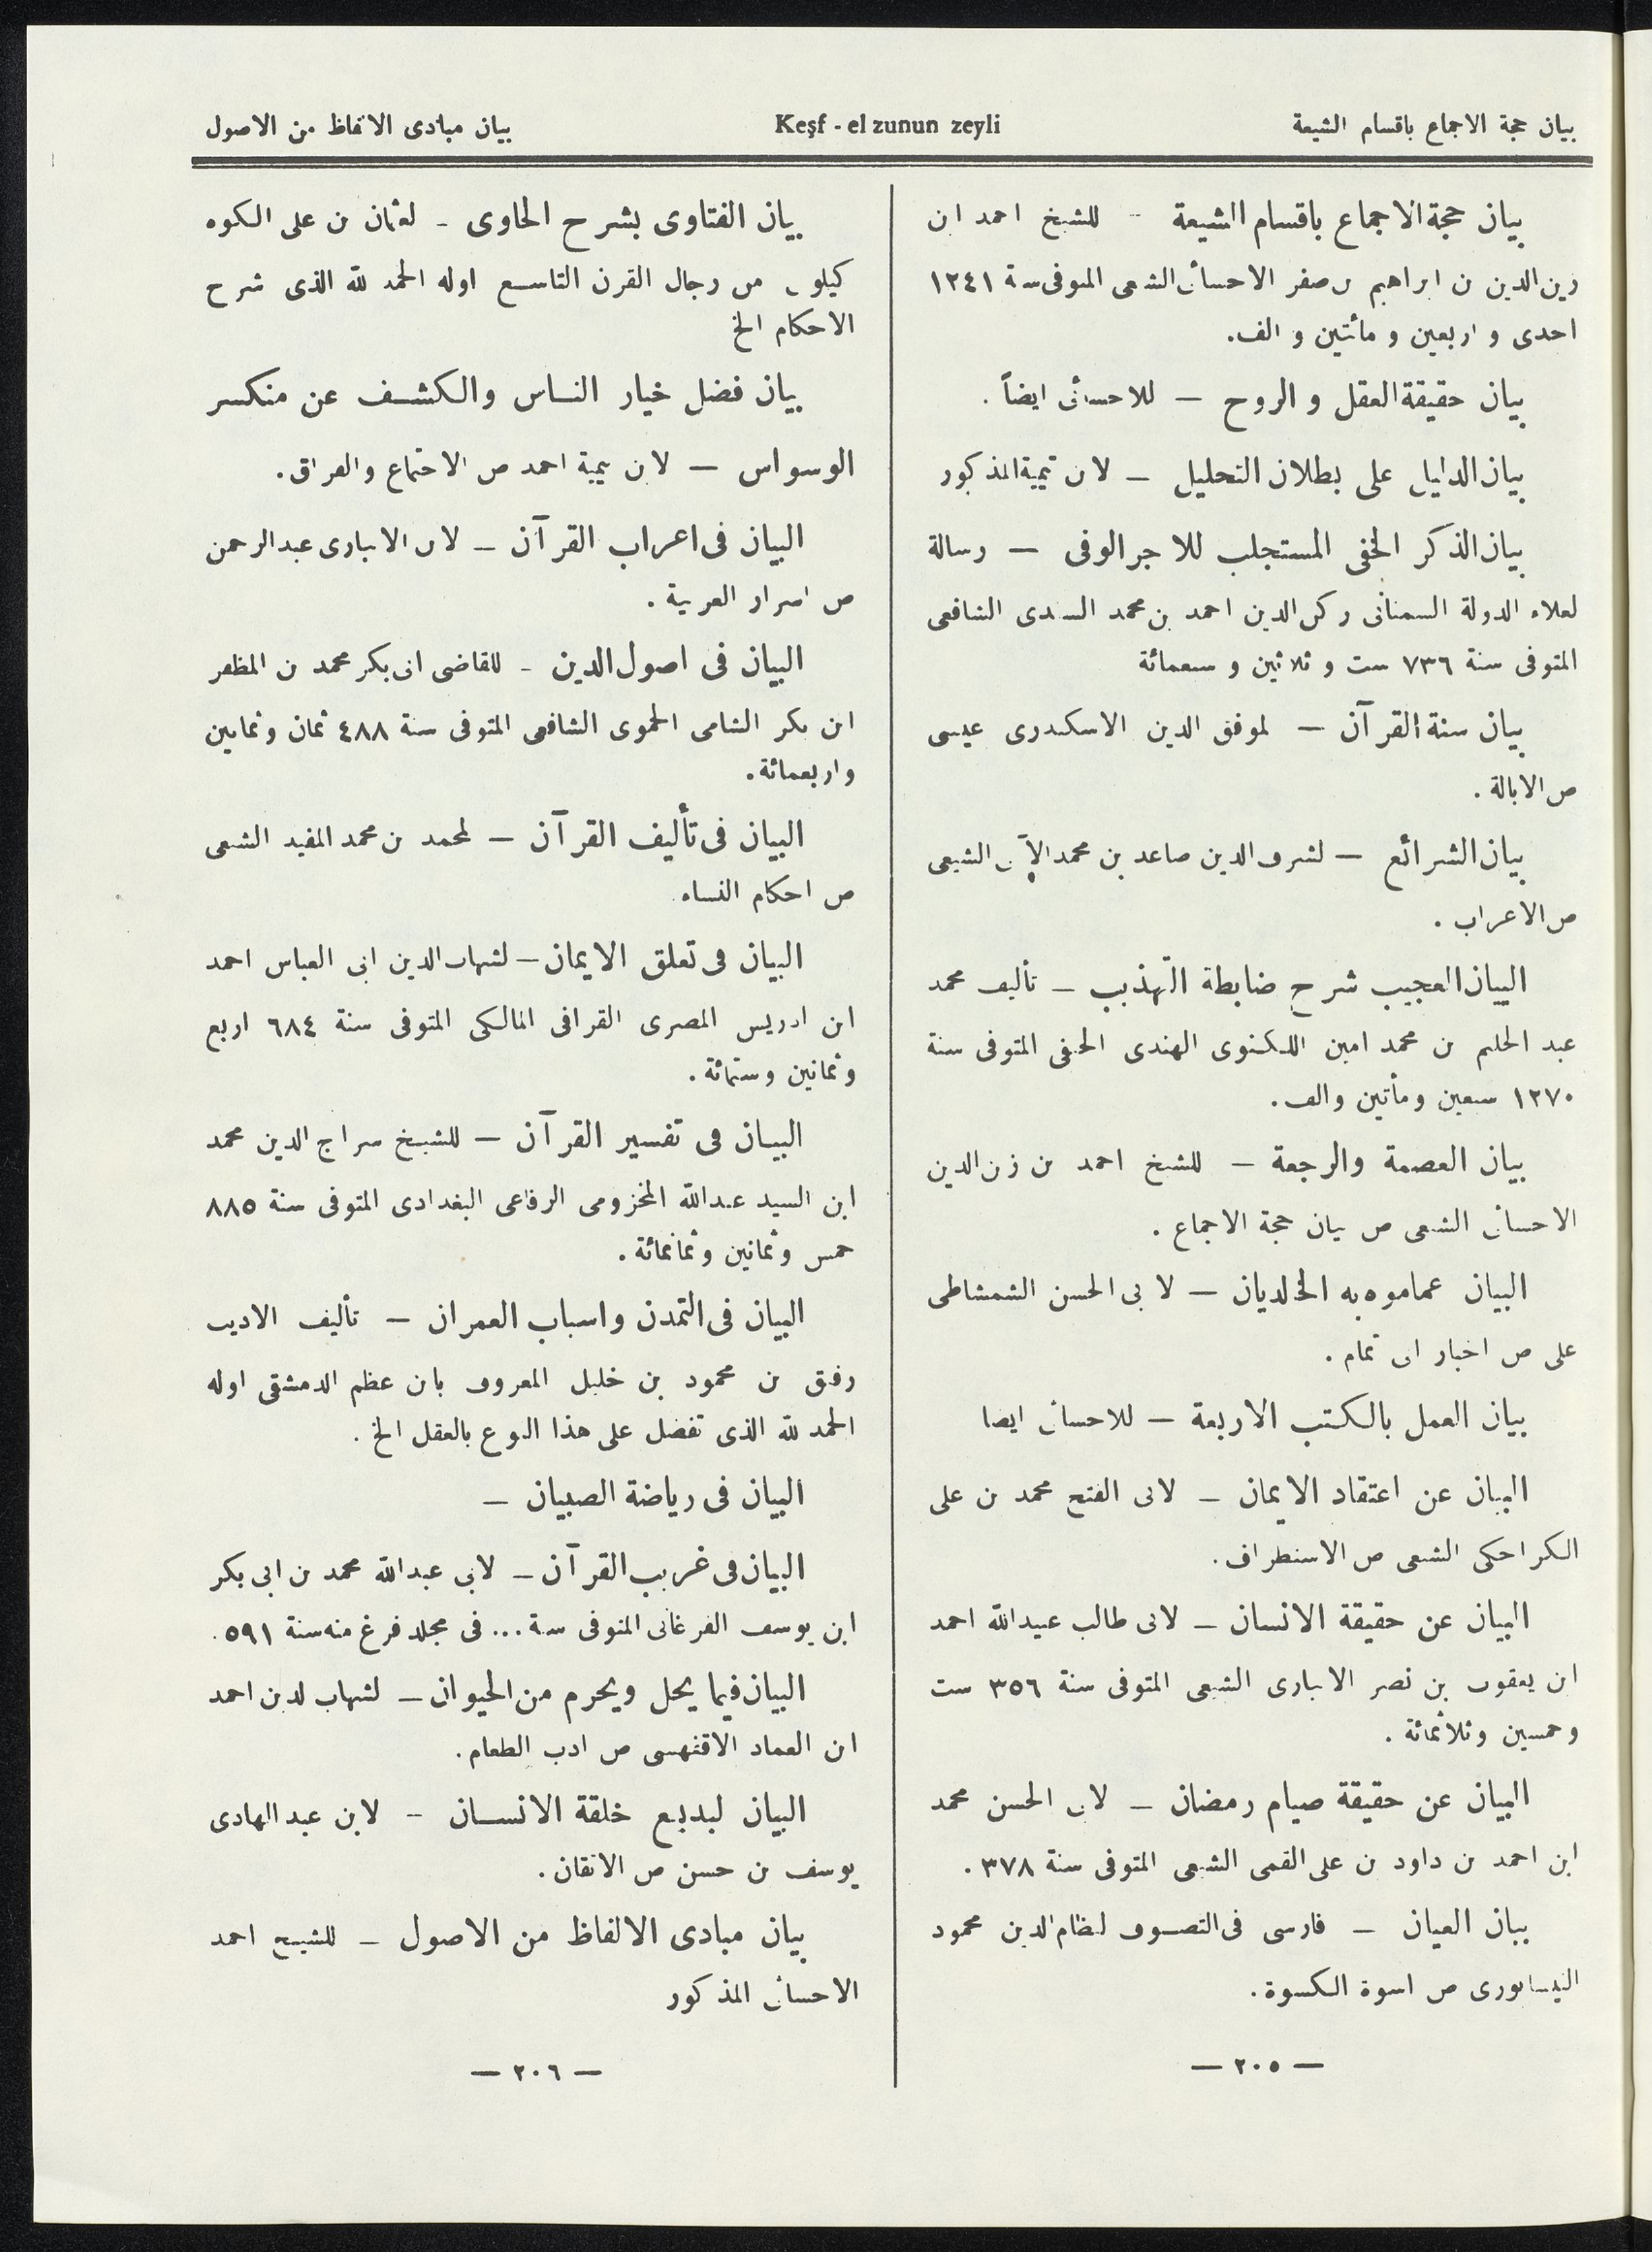 بيان حجة الاجماع باقسام الشيعة
Keşf - el zunun zeyli
بيان مبادى الالفاظ من الاصول
بيان حجة الاجماع باقسام الشيعة - للشيخ احمد ابن
زين‌الدين بن ابراهيم بن صقر الاحسائى الشيعى المتوفى سنة ١٢٤١
احدى و اربعين و مأتين و الف.
بيان حقيقة العقل و الروح — للاحسائى ايضاً .
بيان الدليل على بطلان التحليل — لابن تيمية المذكور
بيان الذكر الخفى المستجلب للاجر الوفى — رسالة
لعلاء الدولة السمنانى ركن الدين احمد بن محمد الشافعى
المتوفى سنة ٧٣٦ ست و ثلاثين و سبعمائة
بيان سنة القرآن — لموفق الدين الاسكندرى عيسى
ص الابالة .
بيان الشرائع — لشرف الدين صاعد بن محمد الشيعى
ص الاعراب .
البيان العجيب شرح ضابطة التهذيب — تأليف محمد
عبد الحليم بن محمد امين اللكنوى الهندى الحنفى المتوفى سنة
١٢٧٠ سبعين ومأتين والف .
بيان العصمة والرجعة — للشيخ احمد بن زين الدين
الاحسائى الشيعى ص بيان حجة الاجماع .
البيان عماموه به الخالديان — لابى الحسن الشمشاطى
على ص اخبار ابى تمام .
بيان العمل بالكتب الاربعة — للاحسائى ايضا
البيان عن اعتقاد الايمان — لابى الفتح محمد بن على
الكراجكى الشيعى ص الاستطراف .
البيان عن حقيقة الانسان — لابى طالب عبيدالله احمد
ابن يعقوب بن نصر الانبارى الشيعى المتوفى سنة ٣٥٦ ست
وخمسين وثلاثمائة .
البيان عن حقيقة صيام رمضان — لابى الحسن محمد
ابن احمد بن داود بن على القمى الشيعى المتوفى سنة ٣٧٨ .
بيان العيان — فارسى فى التصوف لنظام الدين محمود
النيسابورى ص اسوة الكسوة .
— ٢٠٥ —
بيان الفتاوى بشرح الحاوى - لعثمان بن على الكوه
كيلوى من رجال القرن التاسع اوله الحمد لله الذى شرح
الاحكام الخ
بيان فضل خيار الناس والكشف عن منكسر
الوسواس — لابن تيمية احمد ص الاجتماع والفراق .
البيان فى اعراب القرآن — لابن الانبارى عبدالرحمن
ص اسرار العربية .
البيان فى اصول الدين - للقاضى ابى بكر محمد بن المظفر
ابن بكر الشامى الحموى الشافعى المتوفى سنة ٤٨٨ ثمان وثمانين
واربعمائة .
البيان فى تأليف القرآن — لمحمد بن محمد المفيد الشيعى
ص احكام النساء
البيان فى تعلق الايمان — لشهاب الدين ابى العباس احمد
ابن ادريس المصرى القرافى المالكى المتوفى سنة ٦٨٤ اربع
وثمانين وستمائة .
البيان فى تفسير القرآن — للشيخ سراج الدين محمد
ابن السيد عبدالله المخزومى الرفاعى البغدادى المتوفى سنة ٨٨٥
خمس وثمانين وثمانمائة .
البيان فى التمدن واسباب العمران — تأليف الاديب
رفيق بن محمود بن خليل المعروف بابن عظم الدمشقى اوله
الحمد لله الذى تفضل على هذا النوع بالعقل الخ .
البيان فى رياضة الصبيان —
البيان فى غريب القرآن — لابى عبدالله محمد بن ابى بكر
ابن يوسف الفرغانى المتوفى سنة ... فى مجلد فرغ منه سنة ٥٩١ .
البيان فيما يحل ويحرم من الحيوان — لشهاب الدين احمد
ابن العماد الاقفهسى ص ادب الطعام .
البيان لبديع خلقة الانسان - لابن عبد الهادى
يوسف بن حسن ص الاتقان .
بيان مبادى الالفاظ من الاصول — للشيخ احمد
الاحسائى المذكور
— ٢٠٦ —